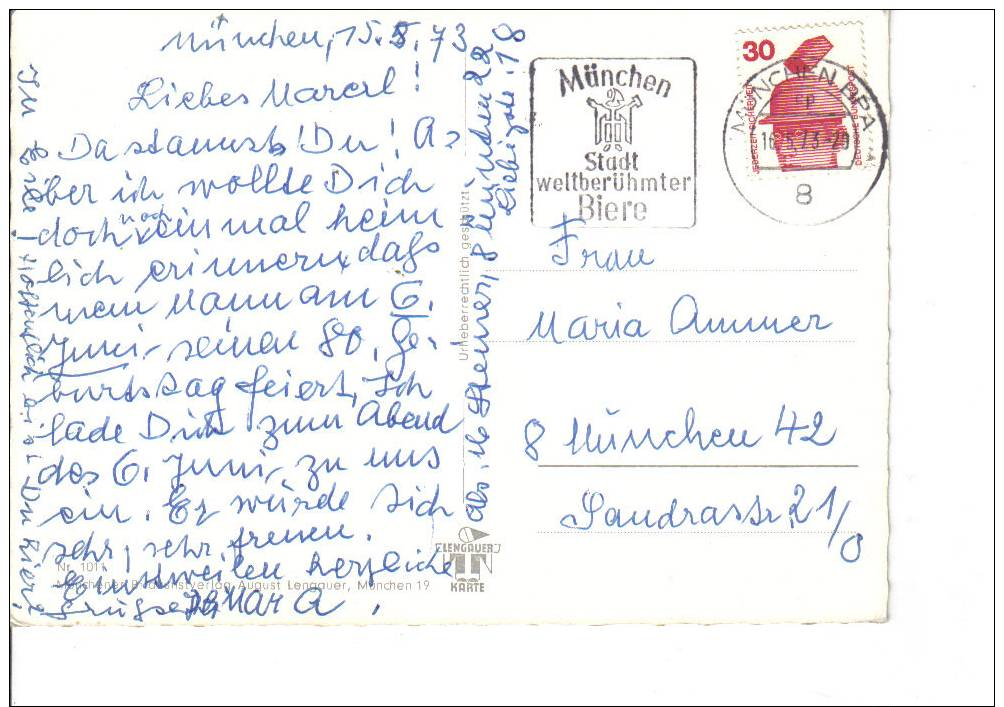 München, 15.5.73
Liebes Marerl!
Da staunst Du! A=
ber ich wollte Dich
doch noch einmal heim
lich erinnern, daß
mein Mann am 6.
Juni, seinen 80. Ge-
burtstag feiert, Ich
lade Dich zum Abend
des 6. Juni, zu uns
ein. Er würde sich
sehr, sehr, freuen.
Einstweilen herzliche
Grüße
Hoffentlich bist Du hier!
8 München 22
Liebigstr. 18
Urheberrechtlich geschützt
Nr. 1011
Münchener Bildkunstverlag August Lengauer, München 19
LENGAUER
KARTE
München
Stadt
weltberühmter
Biere
30
JEDERZEIT SICHERHEIT
DEUTSCHE BUNDESPOST
MÜNCHEN BPA
16.5.73-20
8
Frau
Maria Ammer
8 München 42
Sandrastr. 21/0